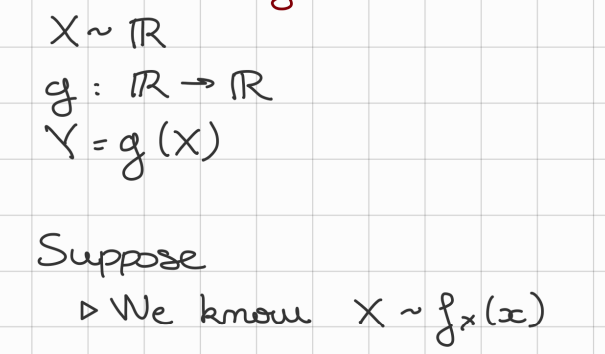 X ~ ℝ
g : ℝ → ℝ
Y = g(X)
Suppose
▷ We know X ~ fₓ(x)